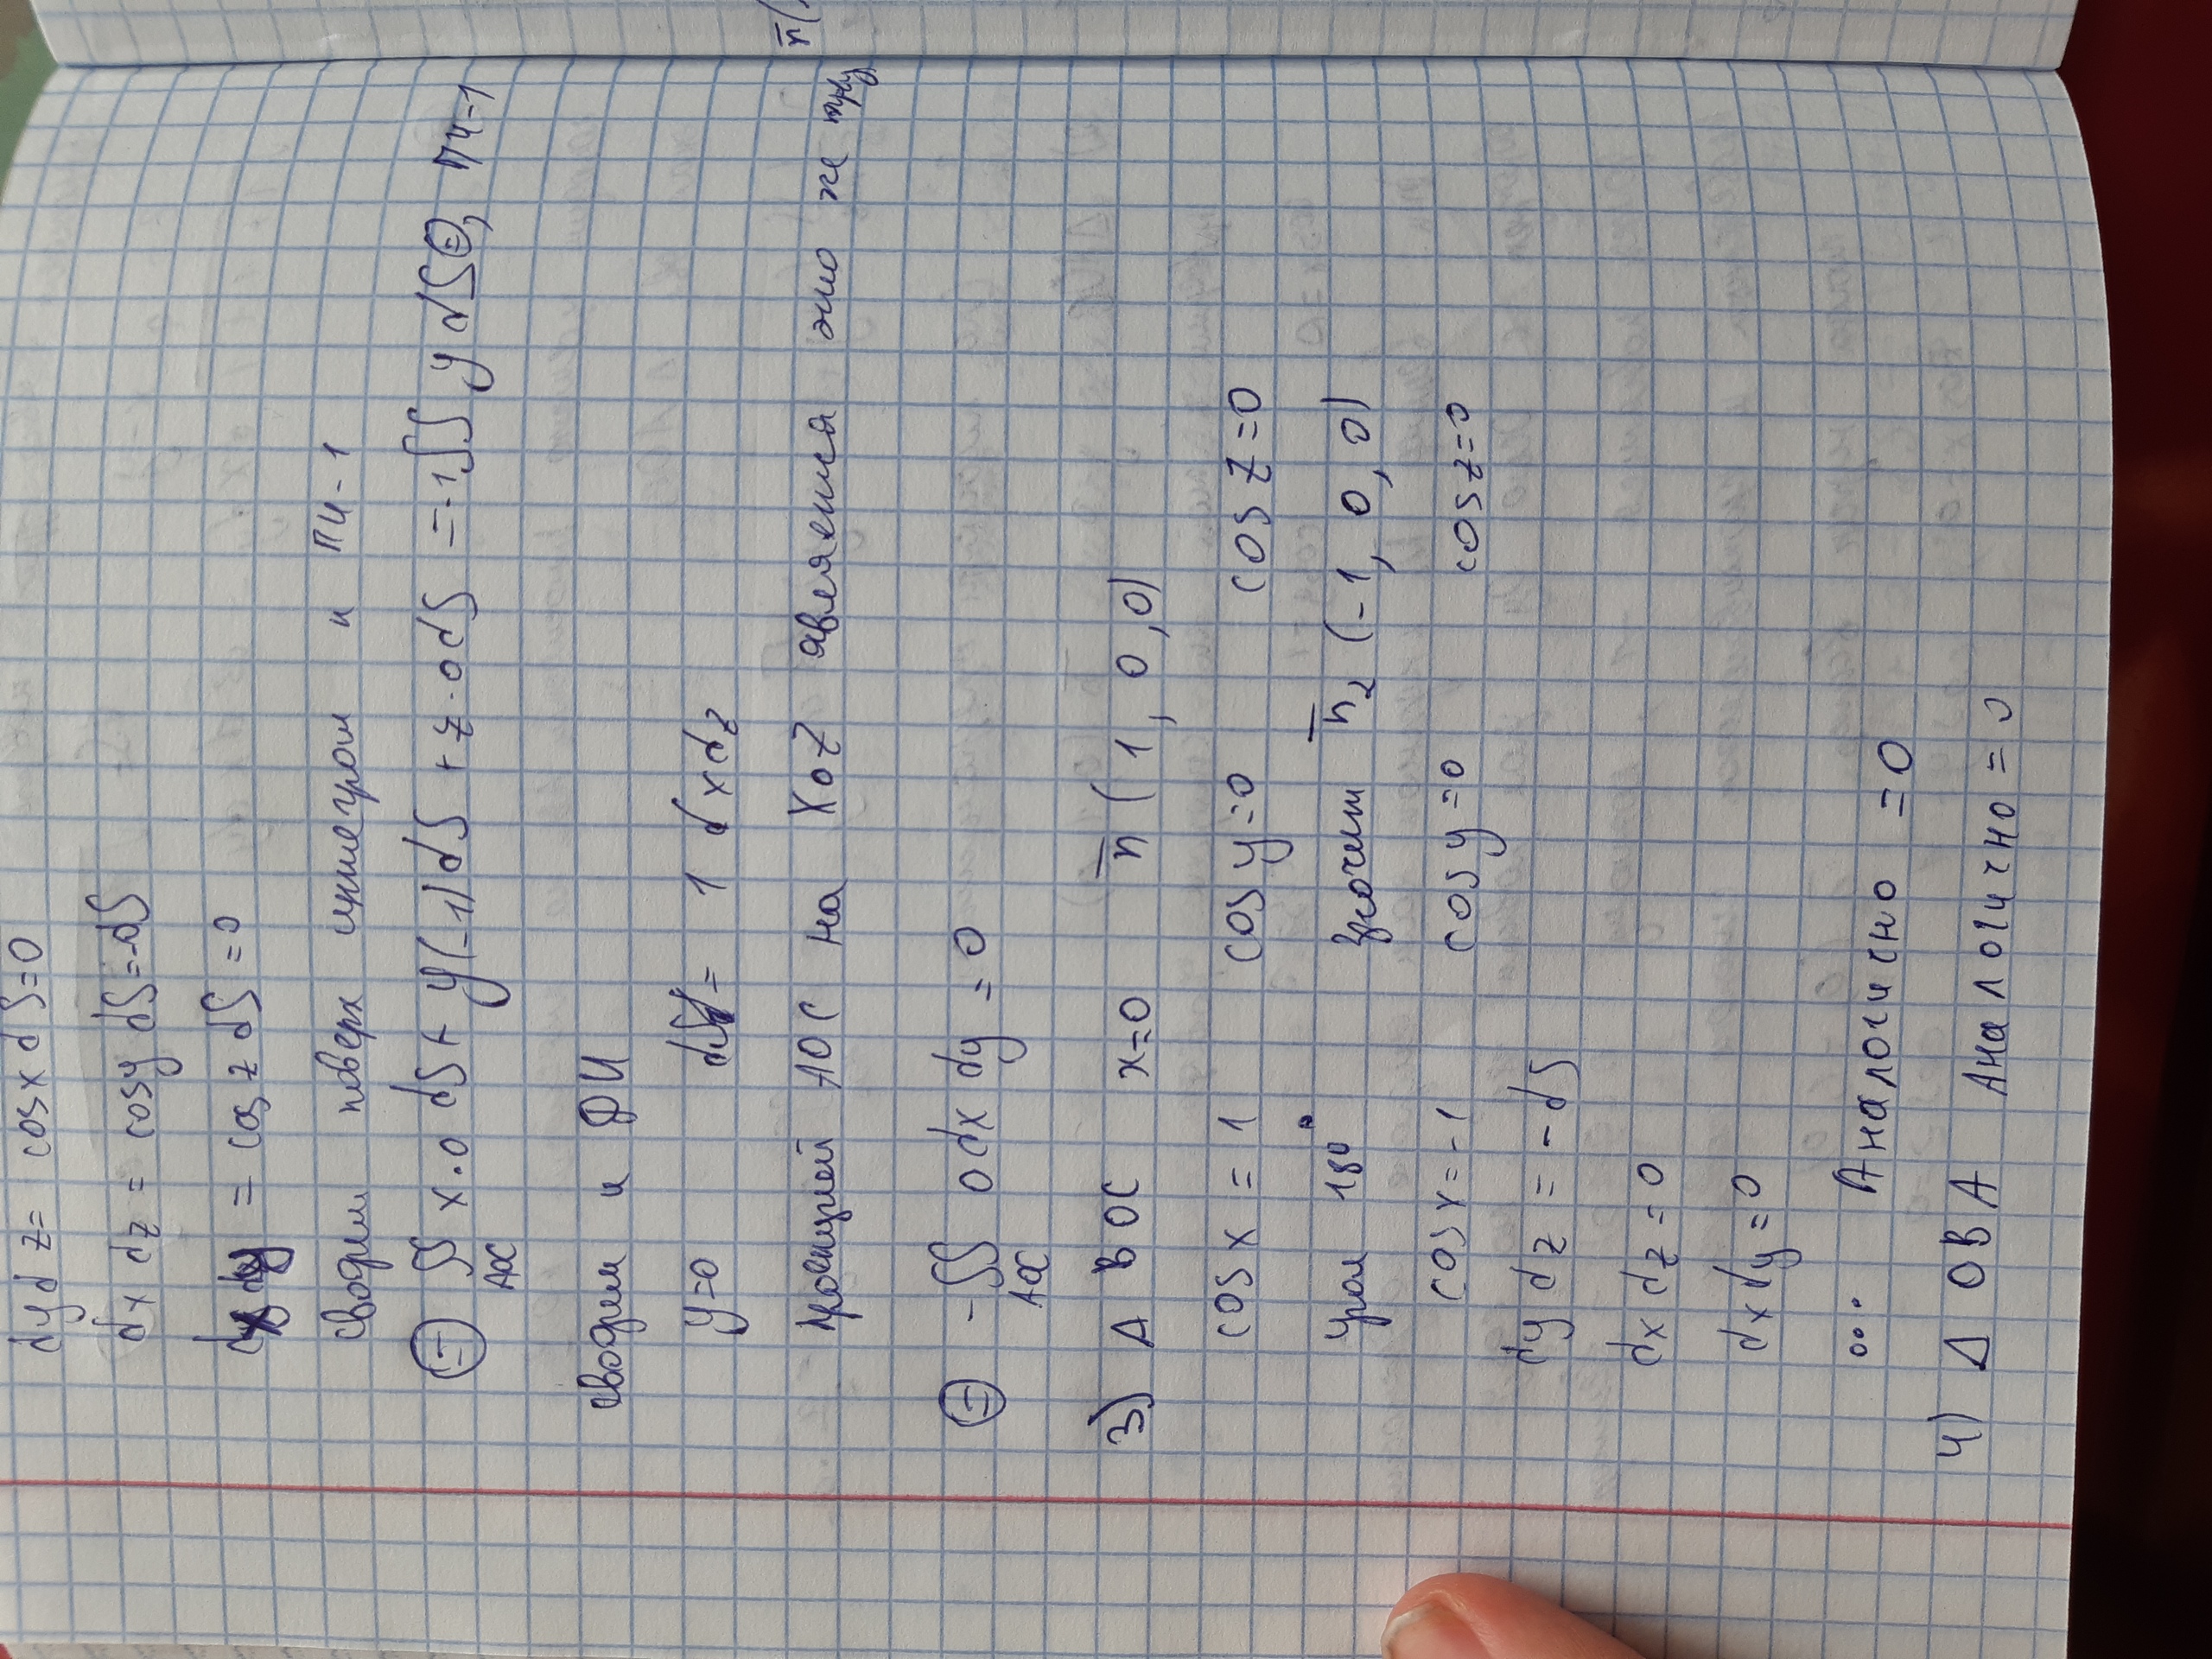 dydz = cosx dS=0
dx dz = cosy dS=-dS
dx dy = cos z dS =0
сводим поверх интеграл к ПИ-1
= ∬ x·0 dS+ y(-1)dS + z·0dS = -1∬ y dS =, ПИ-1
AOC
сводим к ДИ
y=0 dS = 1 dxdz
проекцией AOC на XoZ является это же
= -∬ 0 dx dy = 0
AOC
3) Δ BOC x=0 n̅ (1, 0,0)
cos x = 1 cos y=0 cos z=0
угол 180° значит n̅₂ (-1, 0, 0)
cosx=-1 cosy=0 cosz=0
dy dz = -dS
dx dz = 0
dxdy=0
... Аналогично =0
4) Δ OBA Аналогично = 0
n̅(